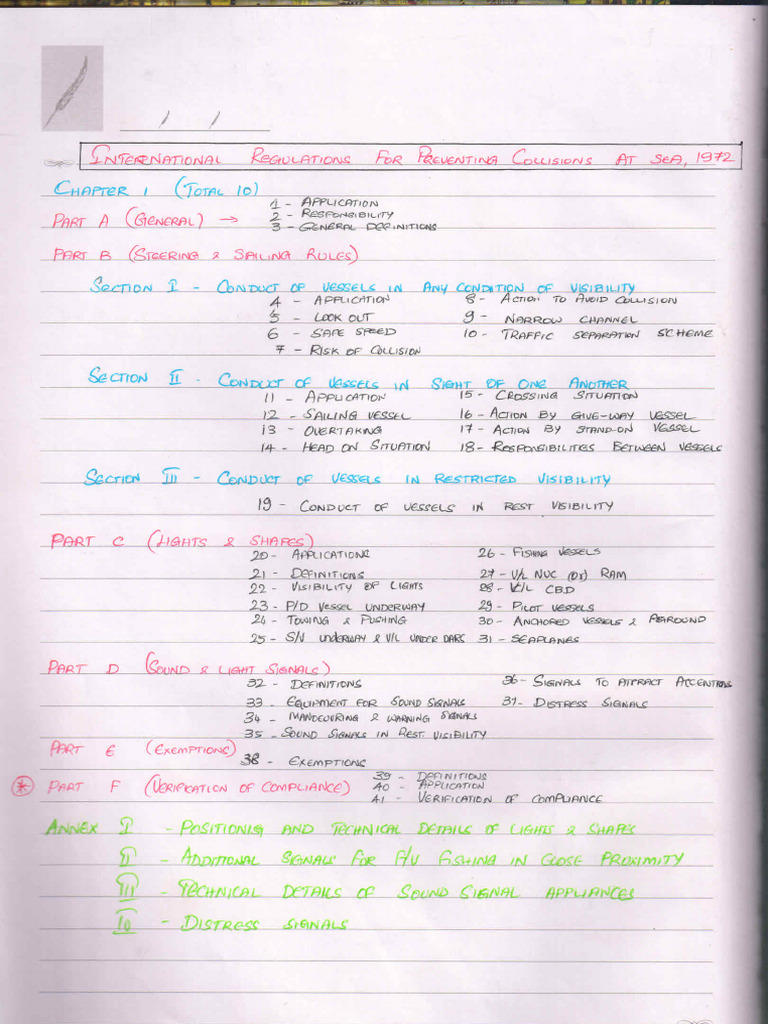 / /
INTERNATIONAL REGULATIONS FOR PREVENTING COLLISIONS AT SEA, 1972
CHAPTER 1 (TOTAL 10)
PART A (GENERAL) → 1 - APPLICATION
2 - RESPONSIBILITY
3 - GENERAL DEFINITIONS
PART B (STEERING & SAILING RULES)
SECTION I - CONDUCT OF VESSELS IN ANY CONDITION OF VISIBILITY
4 - APPLICATION 8 - ACTION TO AVOID COLLISION
5 - LOOK OUT 9 - NARROW CHANNEL
6 - SAFE SPEED 10 - TRAFFIC SEPARATION SCHEME
7 - RISK OF COLLISION
SECTION II - CONDUCT OF VESSELS IN SIGHT OF ONE ANOTHER
11 - APPLICATION 15 - CROSSING SITUATION
12 - SAILING VESSEL 16 - ACTION BY GIVE-WAY VESSEL
13 - OVERTAKING 17 - ACTION BY STAND-ON VESSEL
14 - HEAD ON SITUATION 18 - RESPONSIBILITIES BETWEEN VESSELS
SECTION III - CONDUCT OF VESSELS IN RESTRICTED VISIBILITY
19 - CONDUCT OF VESSELS IN REST VISIBILITY
PART C (LIGHTS & SHAPES)
20 - APPLICATIONS 26 - FISHING VESSELS
21 - DEFINITIONS 27 - V/L NUC (OR) RAM
22 - VISIBILITY OF LIGHTS 28 - V/L CBD
23 - P/D VESSEL UNDERWAY 29 - PILOT VESSELS
24 - TOWING & PUSHING 30 - ANCHORED VESSELS & AGROUND
25 - S/V UNDERWAY & V/L UNDER OARS 31 - SEAPLANES
PART D (SOUND & LIGHT SIGNALS)
32 - DEFINITIONS 36 - SIGNALS TO ATTRACT
33 - EQUIPMENT FOR SOUND SIGNALS 37 - DISTRESS SIGNALS
34 - MANOEUVRING & WARNING SIGNALS
35 - SOUND SIGNALS IN REST. VISIBILITY
PART E (EXEMPTIONS) 38 - EXEMPTIONS
* PART F (VERIFICATION OF COMPLIANCE) 39 - DEFINITIONS
40 - APPLICATION
41 - VERIFICATION OF COMPLIANCE
ANNEX I - POSITIONING AND TECHNICAL DETAILS OF LIGHTS & SHAPES
II - ADDITIONAL SIGNALS FOR F/V FISHING IN CLOSE PROXIMITY
III - TECHNICAL DETAILS OF SOUND SIGNAL APPLIANCES
IV - DISTRESS SIGNALS